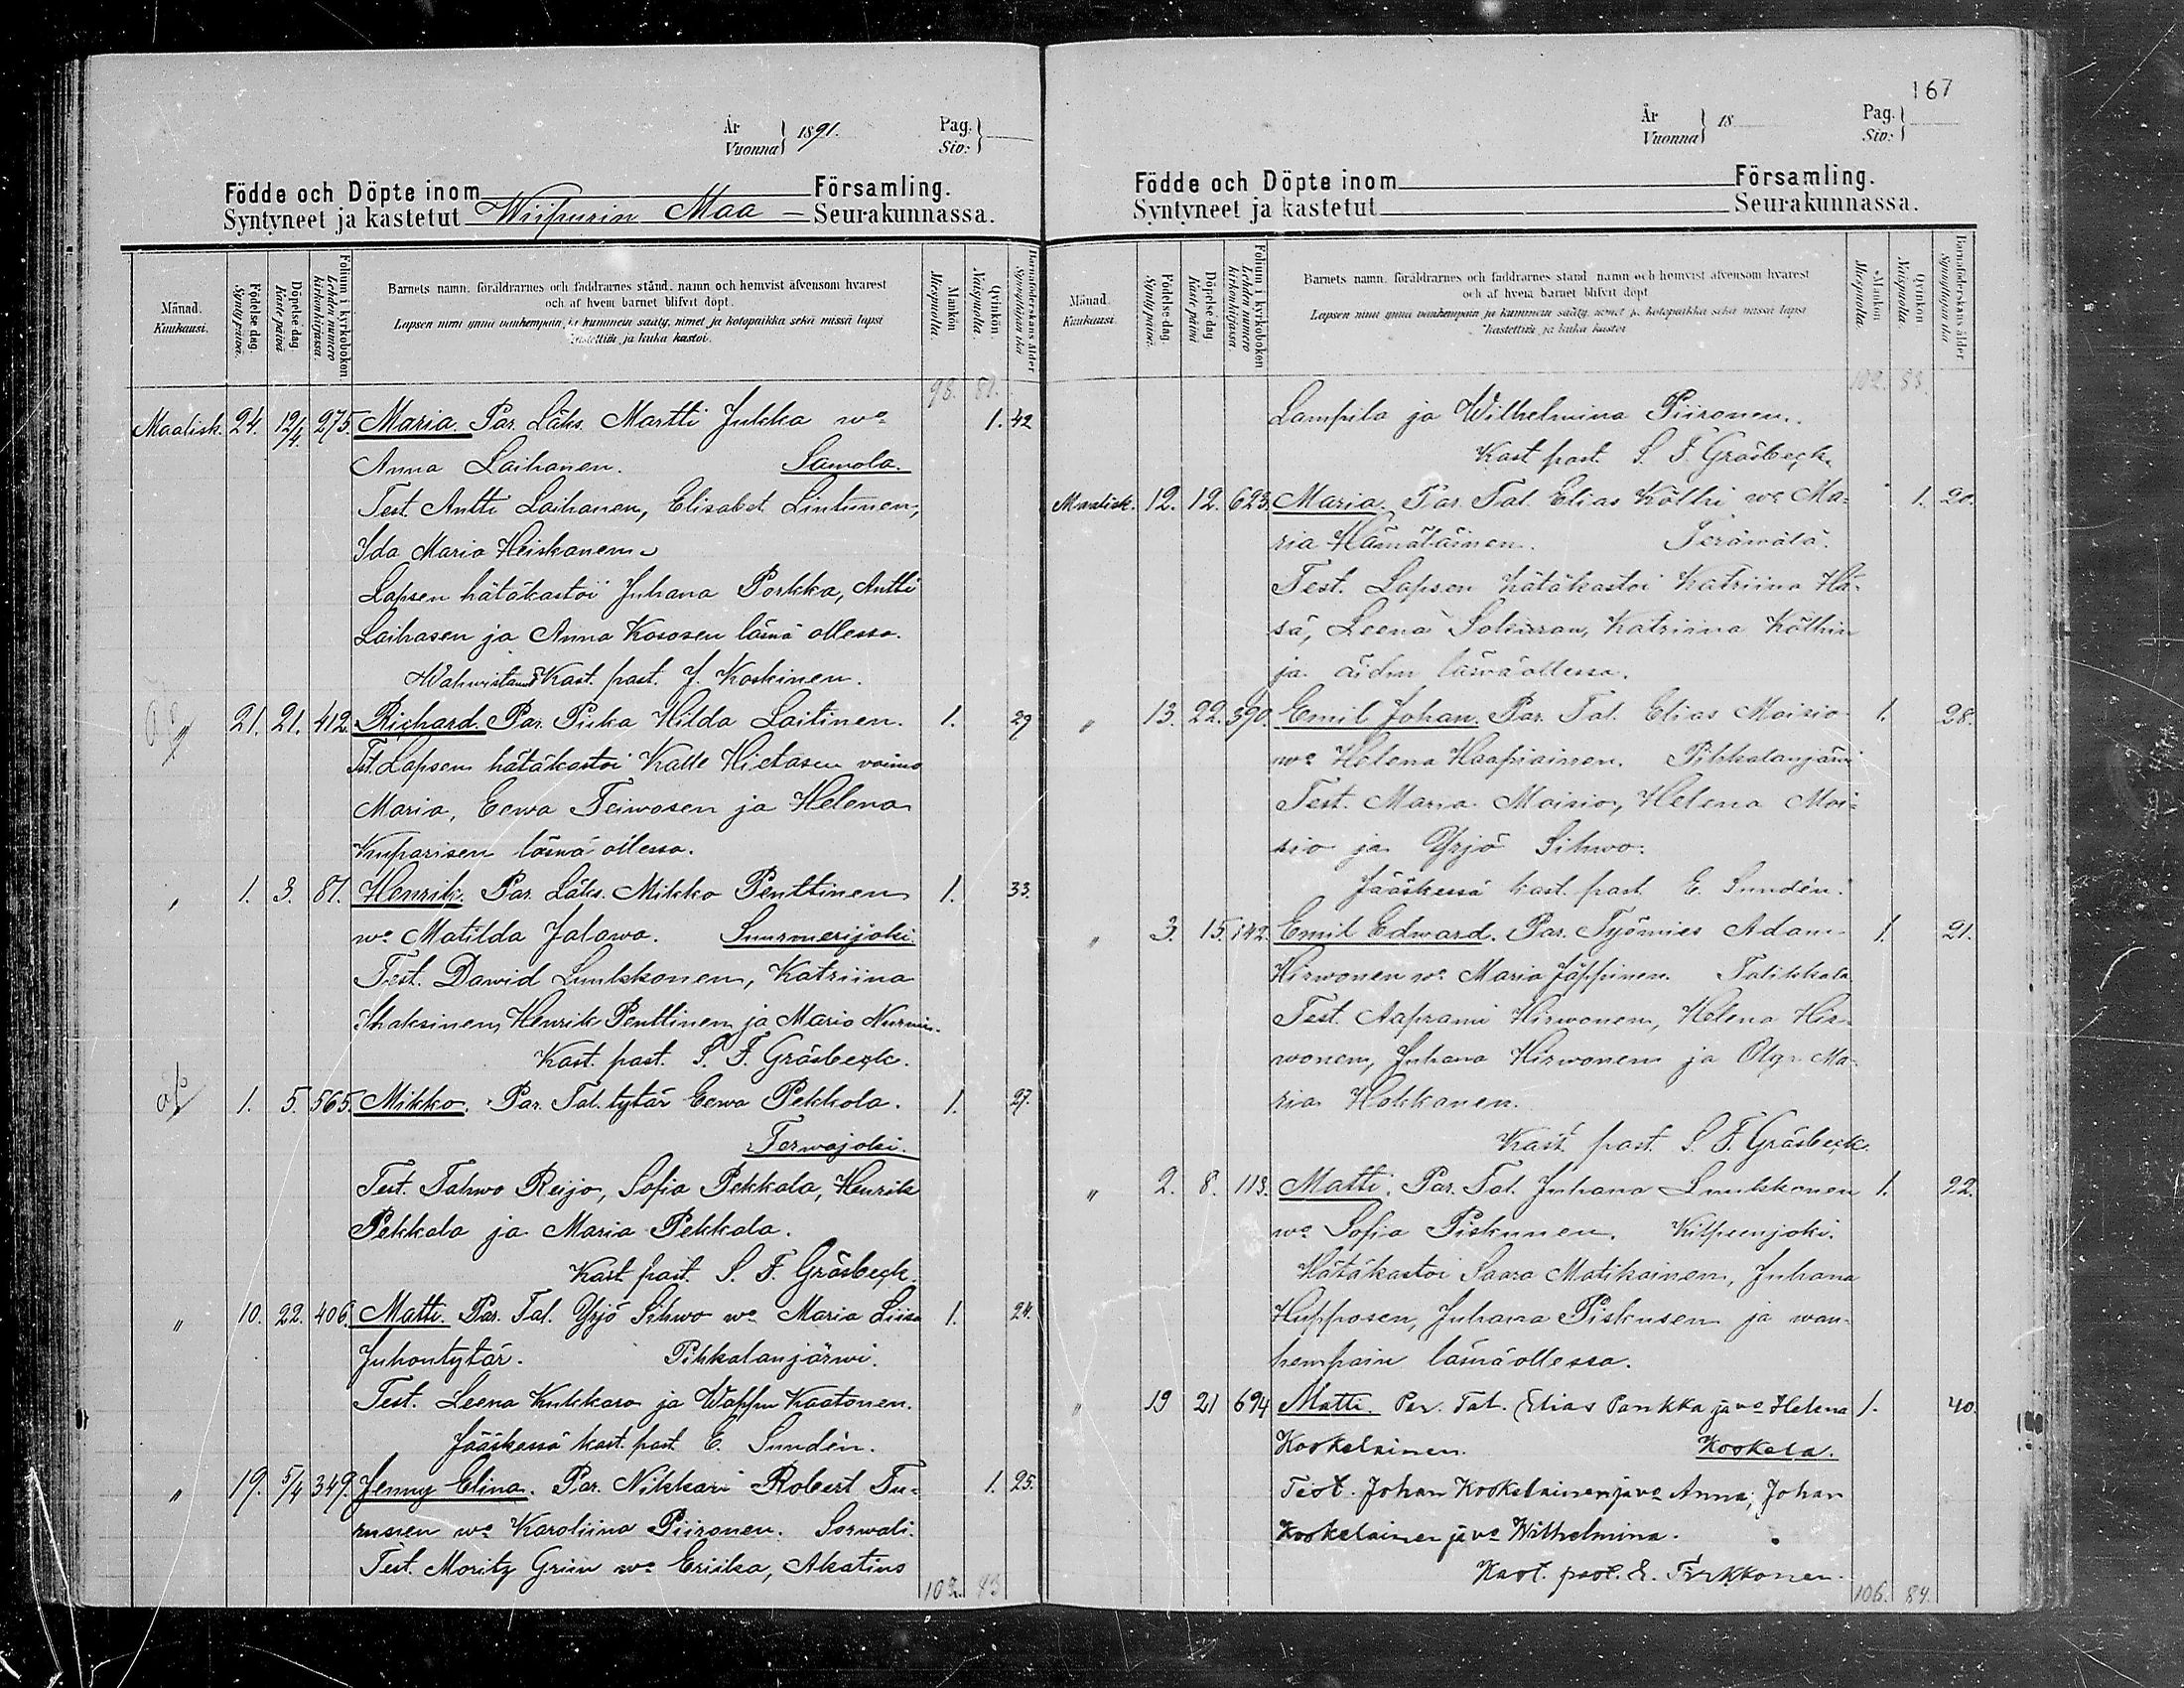 År
Vuonna } 1891.
Pag.
Siv: }
Födde och Döpte inom Församling.
Syntyneet ja kastetut Wiipurin Maa — Seurakunnassa.
Månad. Kuukausi.
Födelse dag. Syntypäivä.
Döpelse dag Kaste päivä
Folium i kyrkoboken Lehden numero kirkonkirjassa.
Barnets namn, föräldrarnes och faddrarnes stånd, namn och hemvist äfvensom hvarest
och af hvem barnet blifvit döpt.
Lapsen nimi ynnä vanhempain ja kummein sääty, nimet ja kotopaikka sekä missä lapsi
kastettiin ja kuka kastoi.
Mankön Miespuolia.
Qvinkön. Vaispuolia.
Barnaföderskans ålder Synnyttäjän ikä
98. 81.
Maalisk. 24. 12/4. 275. Maria. Par. Läks. Martti Jukka wo 1. 42
Anna Laihanen. Samola.
Test. Antti Laihanen, Elisabet Lintunen,
Ida Maria Heiskanen.
Lapsen hätäkastoi Juhana Porkka, Antti
Laihasen ja Anna Kososen läsnä ollessa.
Wahvistanut Kast. past. J. Koskinen.
" 21. 21. 412. Richard. Par. Piika Hilda Laitinen. 1. 29
Tst. Lapsen hätäkastoi Kalle Hietasen vaimo
Maria, Eewa Teiwosen ja Helena
Kuparisen läsnä ollessa.
" 1. 3. 81. Henrik. Par. Läks. Mikko Penttinen 1. 33.
wo Matilda Jalawa. Suurmerijoki.
Test. Dawid Luukkonen, Katriina
Ihaksinen, Henrik Penttinen ja Maria Nurmi.
Kast. past. S. F. Gräsbeck.
1. 5. 565. Mikko. Par. Tal. tytär Eewa Pekkola. 1. 27.
Terwajoki.
Test. Tahwo Reijo, Sofia Pekkala, Henrik
Pekkala ja Maria Pekkala.
Kast. past. S. F. Gräsbeck.
" 10. 22. 406. Matti. Par. Tal. Yrjö Sihwo wo Maria Liisa 1. 24.
Juhontytär. Pihkalanjärwi.
Test. Leena Kukkaro ja Wappu Kaatonen.
Jääskessä kast. past. E. Sundén.
" 19. 5/4 349. Jenny Elina. Par. Nikkari Robert Tu= 1. 25.
runen wo Karoliina Piironen. Sorwali.
Test. Moritz Grün wo Eriika, Akatius
102. 83
167
År
Vuonna } 18
Pag.
Siv: }
Födde och Döpte inom Församling.
Syntyneet ja kastetut Seurakunnassa.
Månad. Kuukausi.
Födelse dag. Syntypäivä.
Döpelse dag Kaste päivä
Folium i kyrkoboken Lehden numero kirkonkirjassa.
Barnets namn, föräldrarnes och faddrarnes stånd, namn och hemvist äfvensom hvarest
och af hvem barnet blifvit döpt
Lapsen nimi ynnä vanhempain ja kummein sääty, nimet ja kotopaikka sekä missä lapsi
kastettiin ja kuka kastoi
Mankön Miespuolia.
Qvinkön Vaispuolia.
Barnaföderskans ålder Synnyttäjän ikä
102. 83.
Lampila ja Wilhelmina Piironen.
Kast past. S. F. Gräsbeck.
Maalisk. 12. 12. 623. Maria. Par. Tal. Elias Kölhi wo Ma= 1. 20.
ria Hämäläinen. Terämälä.
Test. Lapsen hätäkastoi Katriina Hä-
sä, Leena Katriina Kölhin
ja äidin läsnäollessa.
" 13. 22. 390. Emil Johan. Par. Tal. Elias Moisio 1. 28.
wo Helena Haapiainen. Pihkalanjärwi
Test. Maria Moisio, Helena Moi=
sio ja Yrjö Sihwo.
Jääskessä kast. past. E. Sundén.
" 3. 15. 142. Emil Edward. Par. Työmies Adam 1. 21.
Hirwonen wo Maria Jäppinen. Talikkala
Test. Aaprami Hirwonen, Helena Hir-
wonen, Juhana Hirwonen ja Olga Ma-
ria Hokkanen.
Kast. past. S. F. Gräsbeck.
" 2. 8. 113. Matti. Par. Tal. Juhana Luukkonen 1. 22.
wo Sofia Piskunen. Kilpeenjoki.
Hätäkastoi Saara Matikainen, Juhana
Hupposen, Juhana Piskusen ja wan-
hempain läsnäollessa.
" 19 21 694 Matti. Par. Tal. Elias Pankka ja vo Helena 1. 40.
Kookelainen. Kookela.
Test. Johan Kookelainen ja vo Anna; Johan
Kookelainen ja vo Wilhelmina.
Kast. past. E. Tirkkonen.
106. 84.